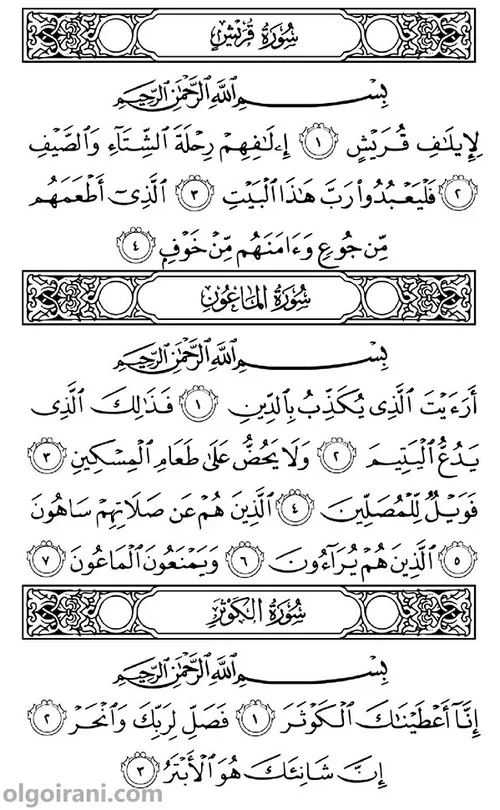 سُورَةُ قُرَيْشٍ
بِسْمِ اللَّهِ الرَّحْمَٰنِ الرَّحِيمِ
لِإِيلَٰفِ قُرَيْشٍ ١ إِۦلَٰفِهِمْ رِحْلَةَ الشِّتَآءِ وَالصَّيْفِ
٢ فَلْيَعْبُدُوا۟ رَبَّ هَٰذَا الْبَيْتِ ٣ الَّذِىٓ أَطْعَمَهُم
مِّن جُوعٍ وَءَامَنَهُم مِّنْ خَوْفٍ ٤
سُورَةُ المَاعُونِ
بِسْمِ اللَّهِ الرَّحْمَٰنِ الرَّحِيمِ
أَرَءَيْتَ الَّذِى يُكَذِّبُ بِالدِّينِ ١ فَذَٰلِكَ الَّذِى
يَدُعُّ الْيَتِيمَ ٢ وَلَا يَحُضُّ عَلَىٰ طَعَامِ الْمِسْكِينِ ٣
فَوَيْلٌ لِّلْمُصَلِّينَ ٤ الَّذِينَ هُمْ عَن صَلَاتِهِمْ سَاهُونَ
٥ الَّذِينَ هُمْ يُرَآءُونَ ٦ وَيَمْنَعُونَ الْمَاعُونَ ٧
سُورَةُ الكَوْثَرِ
بِسْمِ اللَّهِ الرَّحْمَٰنِ الرَّحِيمِ
إِنَّآ أَعْطَيْنَٰكَ الْكَوْثَرَ ١ فَصَلِّ لِرَبِّكَ وَانْحَرْ ٢
إِنَّ شَانِئَكَ هُوَ الْأَبْتَرُ ٣
olgoirani.com